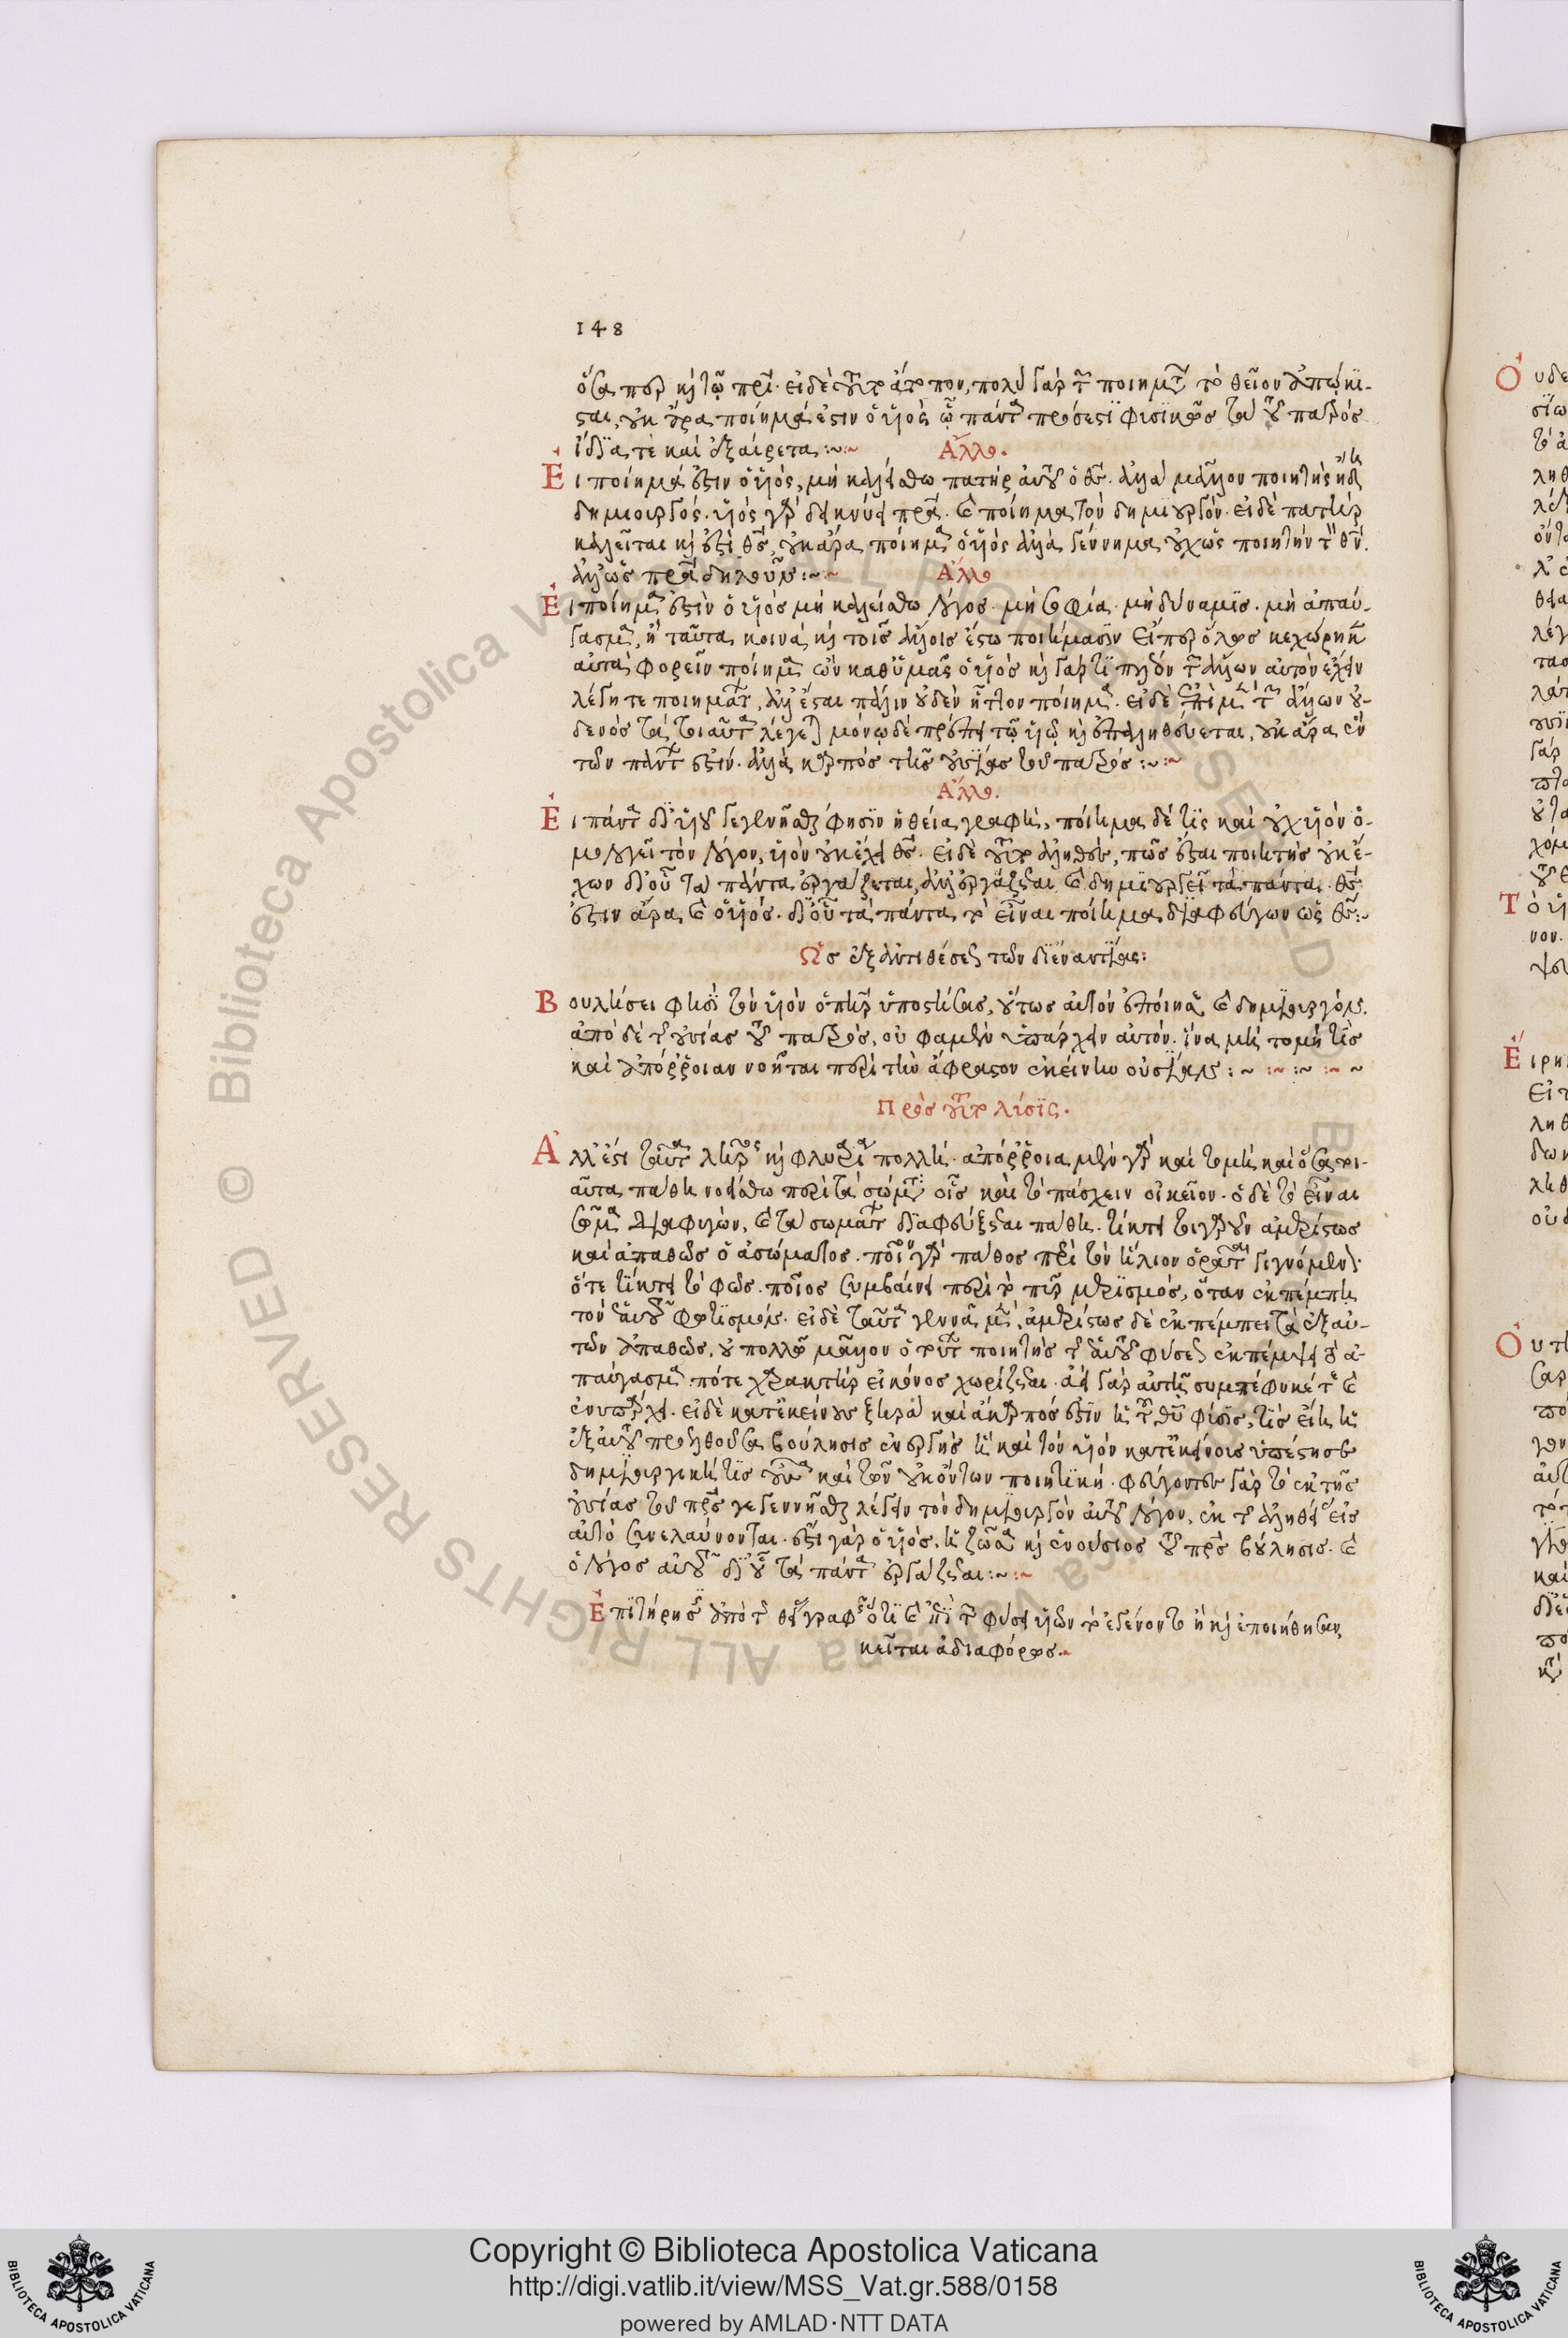 148
ὅσαπερ καὶ τῷ πρί. εἰ δὲ τοῦτο ἄτοπον, πολὺ γὰρ τῶν ποιημάτων τὸ θεῖον ἀπῴκι-
σται, οὐκ ἄρα ποίημά ἐστιν ὁ υἱὸς ᾧ πάντα πρόσεστι φυσικῶς τὰ τοῦ πατρὸς
ἴδιά τε καὶ ἐξαίρετα :~
Ἄλλο.
Εἰ ποίημά ἐστιν ὁ υἱός, μὴ καλείσθω πατὴρ αὐτοῦ ὁ θς. ἀλλὰ μᾶλλον ποιητὴς ἤδη καὶ
δημιουργός. υἱὸς γὰρ δεικνύει πρα. καὶ ποίημα τὸν δημιουργόν. εἰ δὲ πατὴρ
καλεῖται καὶ ἔστι θς, οὐκ ἄρα ποίημα ὁ υἱὸς ἀλλὰ γέννημα οὐχ ὡς ποιητὴν τὸν θν.
ἀλλ' ὡς πρα δηλοῦν :~
Ἄλλο
Εἰ ποίημα ἐστὶν ὁ υἱὸς μὴ καλείσθω λόγος. μὴ σοφία. μὴ δύναμις. μὴ ἀπαύ-
γασμα, ἢ ταῦτα κοινὰ καὶ τοῖς ἄλλοις ἔστω ποιήμασιν εἴπερ ὅλως κεχώρηκεν
αὐτὰ φορεῖν ποίημα ὢν καθ' ὑμᾶς ὁ υἱὸς καὶ γάρ τι πλέον τῶν ἄλλων αὐτὸν ἔχειν
λέγητε ποιημάτων, ἀλλ' ἔσται πάλιν οὐδὲν ἧττον ποίημα. εἰ δὲ ἐπὶ μὲν τῶν ἄλλων οὐ-
δενὸς τὰ τοιαῦτα λέγεται μόνῳ δὲ πρέπει τῷ υἱῷ καὶ ἐπαληθεύεται, οὐκ ἄρα ἓν
τῶν πάντων ἐστίν. ἀλλὰ καρπὸς τῆς οὐσίας τοῦ πατρός :~
Ἄλλο.
Εἰ πάντα δι' υἱοῦ γεγενῆσθαι φησὶν ἡ θεία γραφή, ποίημα δέ τις καὶ οὐχ υἱὸν ὁ-
μολογεῖ τὸν λόγον, υἱὸν οὐκ ἔχει θς. εἰ δὲ τοῦτο ἀληθές, πῶς ἔσται ποιητὴς οὐκ ἔ-
χων δι' οὗ τὰ πάντα ἐργάζεται, ἀλλ' ἐργάζεται καὶ δημιουργεῖ τὰ πάντα. θς
ἐστιν ἄρα καὶ ὁ υἱός. δι' οὗ τὰ πάντα τὸ εἶναι ποίημα διαφεύγων ὡς θς :~
Ὡς ἐξ ἀντιθέσεως τῶν δι' ἐναντίας :
Βουλήσει φησὶ τὸν υἱὸν ὁ πὴρ ὑποστήσας, οὕτως αὐτὸν ἐποίησε καὶ δημιουργόν.
ἀπὸ δὲ τῆς οὐσίας τοῦ πατρός, οὐ φαμὲν ὑπάρχειν αὐτόν. ἵνα μὴ τομή τις
καὶ ἀπόρροιαν νοῆται περὶ τὴν ἄφραστον ἐκείνην οὐσίαν :~ :~ :~ :~ ~
Πρὸς τοῦτο λύσις.
Ἀλλ' ἔστι ταῦτα λῆρος καὶ φλυαρία πολλή. ἀπόρροια μὲν γὰρ καὶ τομὴ καὶ ὅσα τοι-
αῦτα πάθη νοείσθω περὶ τὰ σώματα οἷς καὶ τὸ πάσχειν οἰκεῖον. ὁ δὲ τὸ εἶναι
σῶμα διαφυγών, καὶ τὰ σωμάτων διαφεύξεται πάθη. τίκτει τοιγαροῦν ἀμερίστως
καὶ ἀπαθῶς ὁ ἀσώματος. ποῖον γὰρ πάθος περὶ τὸν ἥλιον ὁρᾶται γεγνόμενον
ὅτε τίκτει τὸ φῶς. ποῖος συμβαίνει περὶ τὸ πῦρ μερισμός, ὅταν ἐκπέμπῃ
τὸν ἐξ αὐτοῦ φωτισμόν. εἰ δὲ ταῦτα γεννᾷ μέν, ἀμερίστως δὲ ἐκπέμπει τὰ ἐξ αὐ-
τῶν ἀπαθῶς, οὐ πολλῷ μᾶλλον ὁ τούτων ποιητὴς τῆς ἑαυτοῦ φύσεως ἐκπέμψει τὸ ἀ-
παύγασμα πότε χαρακτὴρ εἰκόνος χωρίζεται. ἀεὶ γὰρ αὐτῇ συμπέφυκέ τε καὶ
ἐνυπάρχει. εἰ δὲ κατ' ἐκείνους ξηρὰ καὶ ἄκαρπός ἐστιν ἡ τοῦ θυ φύσις, τίς εἴη ἡ
ἐξ αὐτοῦ προελθοῦσα βούλησις ἐνεργὴς ἣ καὶ τὸν υἱὸν κατ' ἐκείνοις ὑπέστησε
δημιουργική τις οὖσα καὶ τῶν οὐκ ὄντων ποιητική. φεύγοντες γὰρ τὸ ἐκ τῆς
οὐσίας τοῦ πρς γεγεννῆσθαι λέγειν τὸν δημιουργὸν αὐτοῦ λόγον, ἐκ τῆς ἀληθείας εἰς
αὐτὸ συνελαύνονται. ἔστι γὰρ ὁ υἱός, ἡ ζῶσα καὶ ἐνούσιος τοῦ πρς βούλησις. καὶ
ὁ λόγος αὐτοῦ δι' οὗ τὰ πάντα ἐργάζεται :~
Ἐπιτήρησις ἀπὸ τῆς θείας γραφῆς ὅτι καὶ ἐπὶ τῶν φύσει υἱῶν τὸ ἐγένοντο ἢ καὶ ἐποιήθησαν,
κεῖται ἀδιαφόρως.~
Copyright © Biblioteca Apostolica Vaticana
http://digi.vatlib.it/view/MSS_Vat.gr.588/0158
powered by AMLAD·NTT DATA